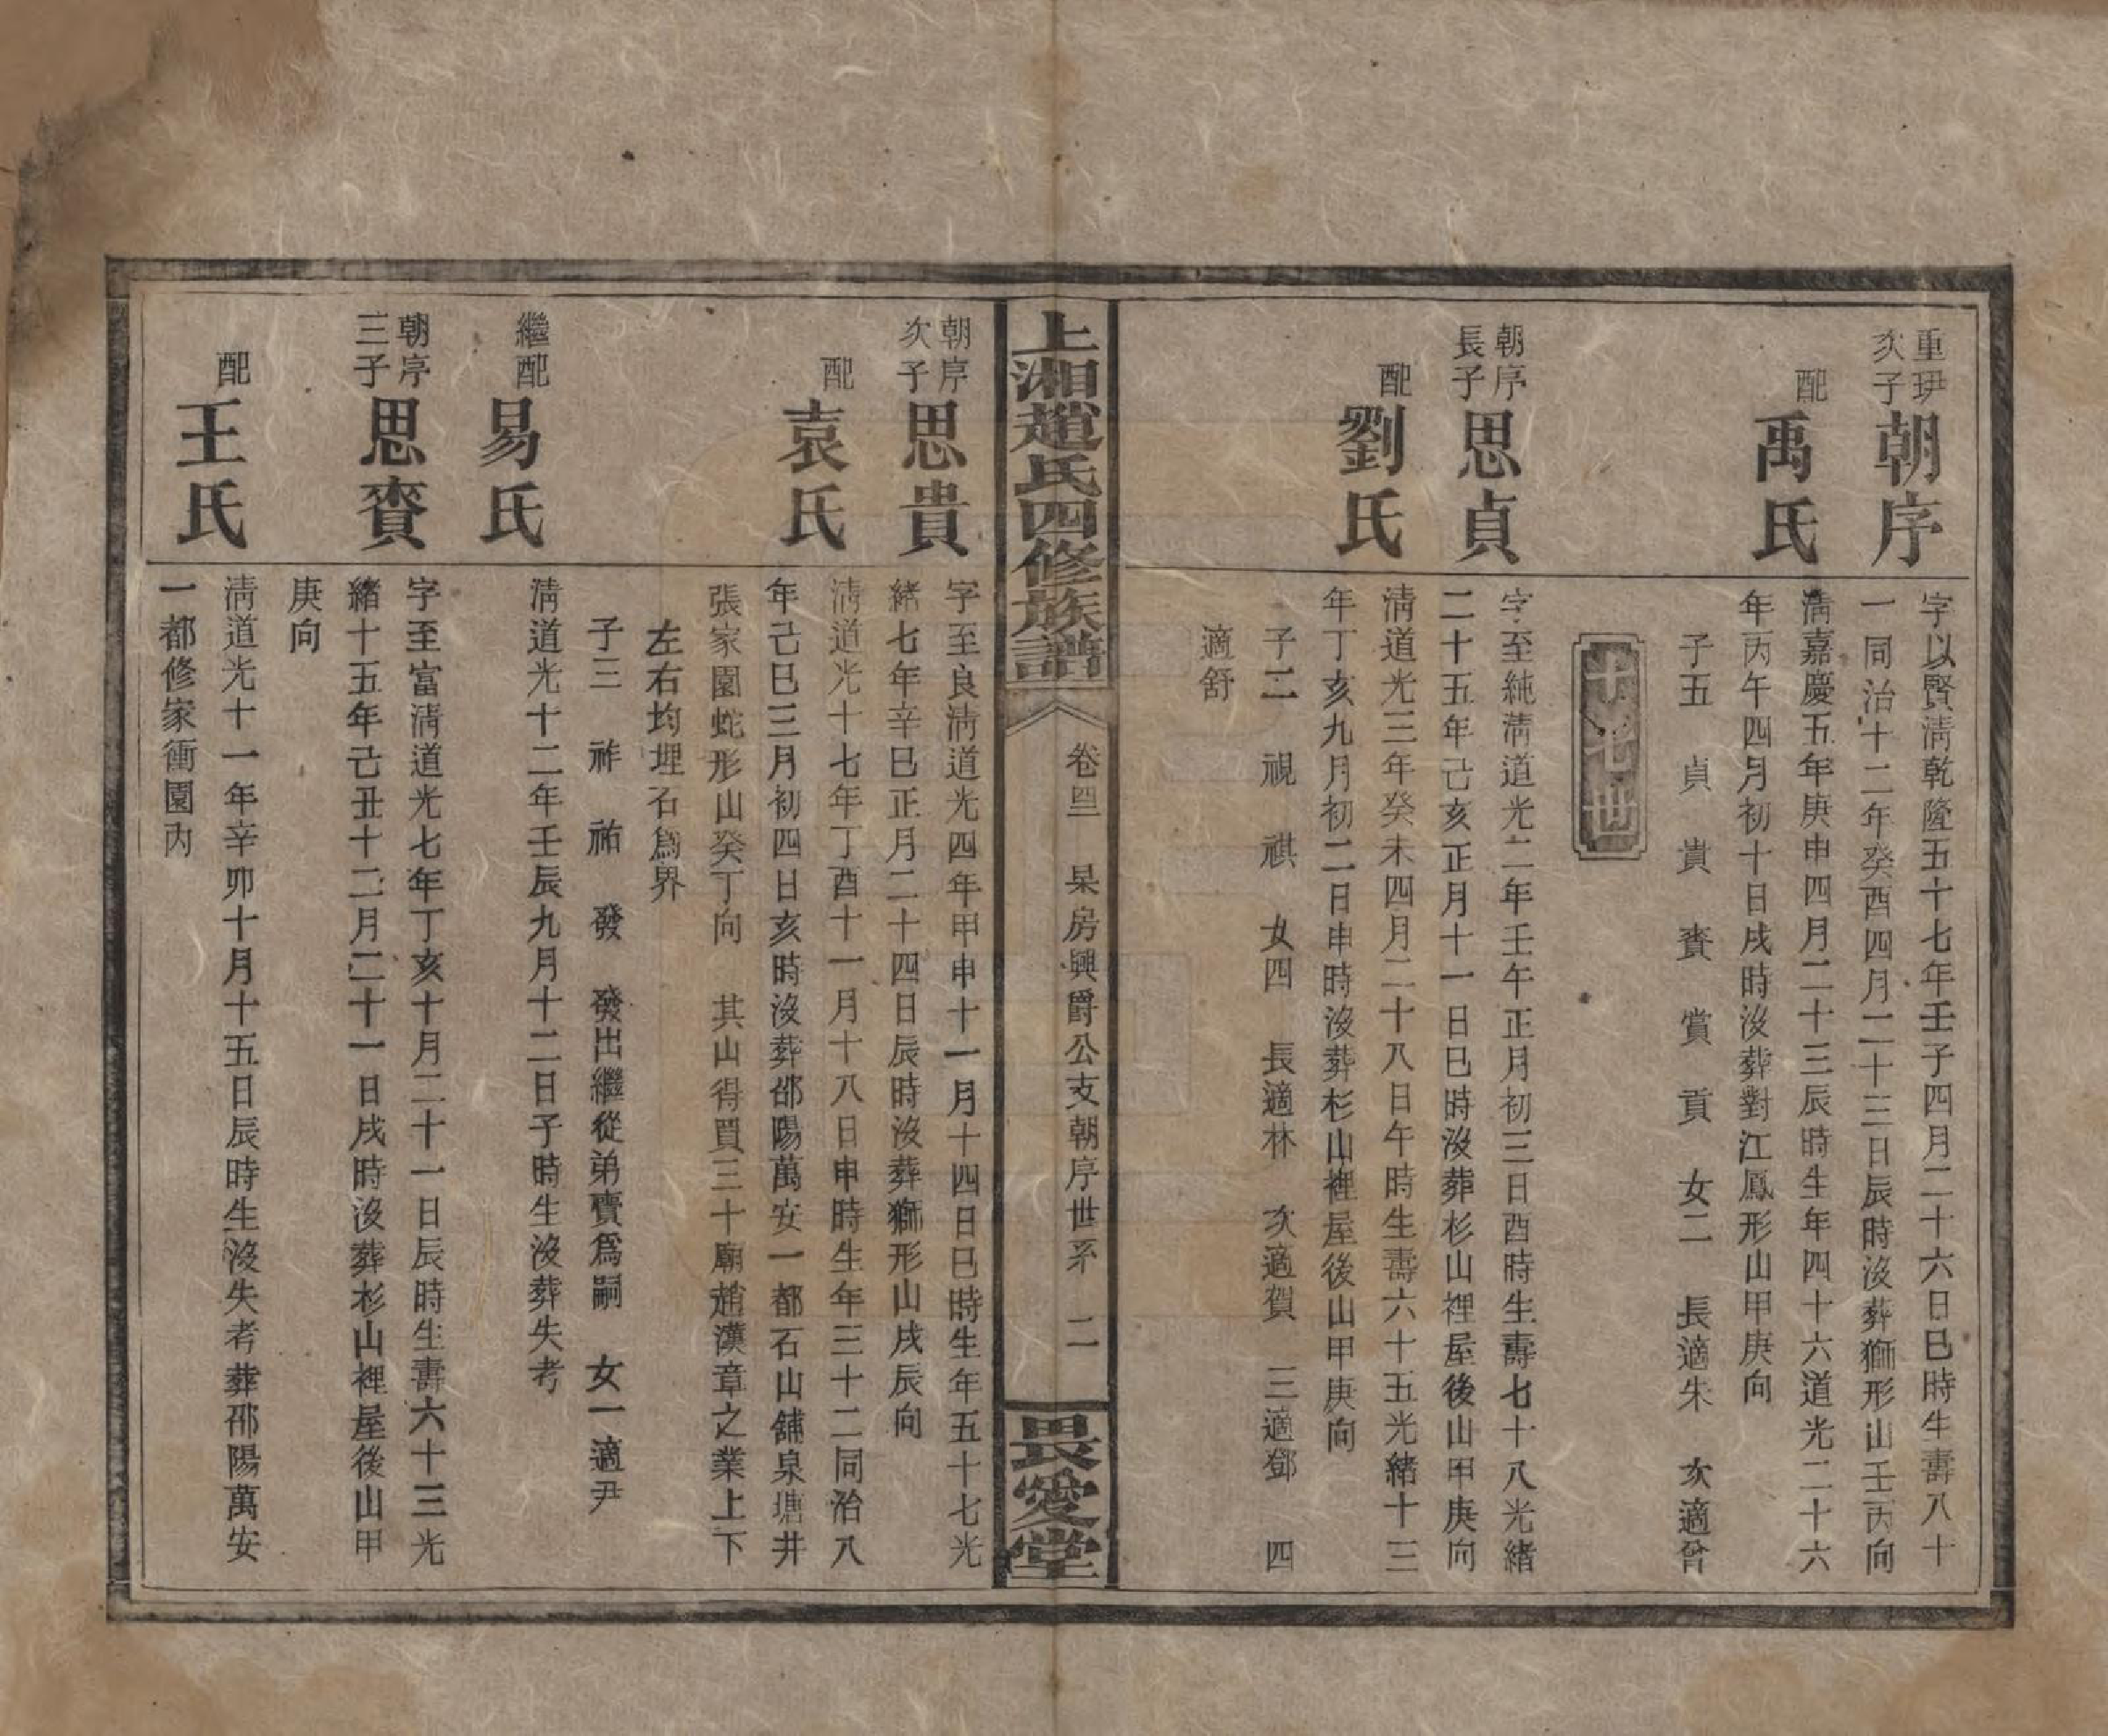 重玾
次子
朝序
字以賢淸乾隆五十七年壬子四月二十六日巳時生壽八十
一同治十二年癸酉四月二十三日辰時沒葬獅形山壬丙向
配
禹氏
淸嘉慶五年庚申四月二十三辰時生年四十六道光二十六
年丙午四月初十日戌時沒葬對江鳳形山甲庚向
子五 貞 貴 賚 賞 貢 女二 長適朱 次適曾
十七世
朝序
長子
思貞
字至純淸道光二年壬午正月初三日酉時生壽七十八光緒
二十五年己亥正月十一日巳時沒葬杉山裡屋後山甲庚向
配
劉氏
淸道光三年癸未四月二十八日午時生壽六十五光緒十三
年丁亥九月初二日申時沒葬杉山裡屋後山甲庚向
子二 視 祺 女四 長適林 次適賀 三適鄧 四
適舒
上湘趙氏四修族譜
卷四 杲房興爵公支朝序世系 二
畏愛堂
朝序
次子
思貴
字至良淸道光四年甲申十一月十四日巳時生年五十七光
緒七年辛巳正月二十四日辰時沒葬獅形山戌辰向
配
袁氏
淸道光十七年丁酉十一月十八日申時生年三十二同治八
年己巳三月初四日亥時沒葬邵陽萬安一都石山舖泉塘井
張家園蛇形山癸丁向 其山得買三十廟趙漢章之業上下
左右均埋石爲界
子三 祚 祐 發 發出繼從弟賣爲嗣 女一適尹
繼配
易氏
淸道光十二年壬辰九月十二日子時生沒葬失考
朝序
三子
思賚
字至富淸道光七年丁亥十月二十一日辰時生壽六十三光
緒十五年己丑十二月二十一日戌時沒葬杉山裡屋後山甲
庚向
配
王氏
淸道光十一年辛卯十月十五日辰時生沒失考葬邵陽萬安
一都修家衝園內